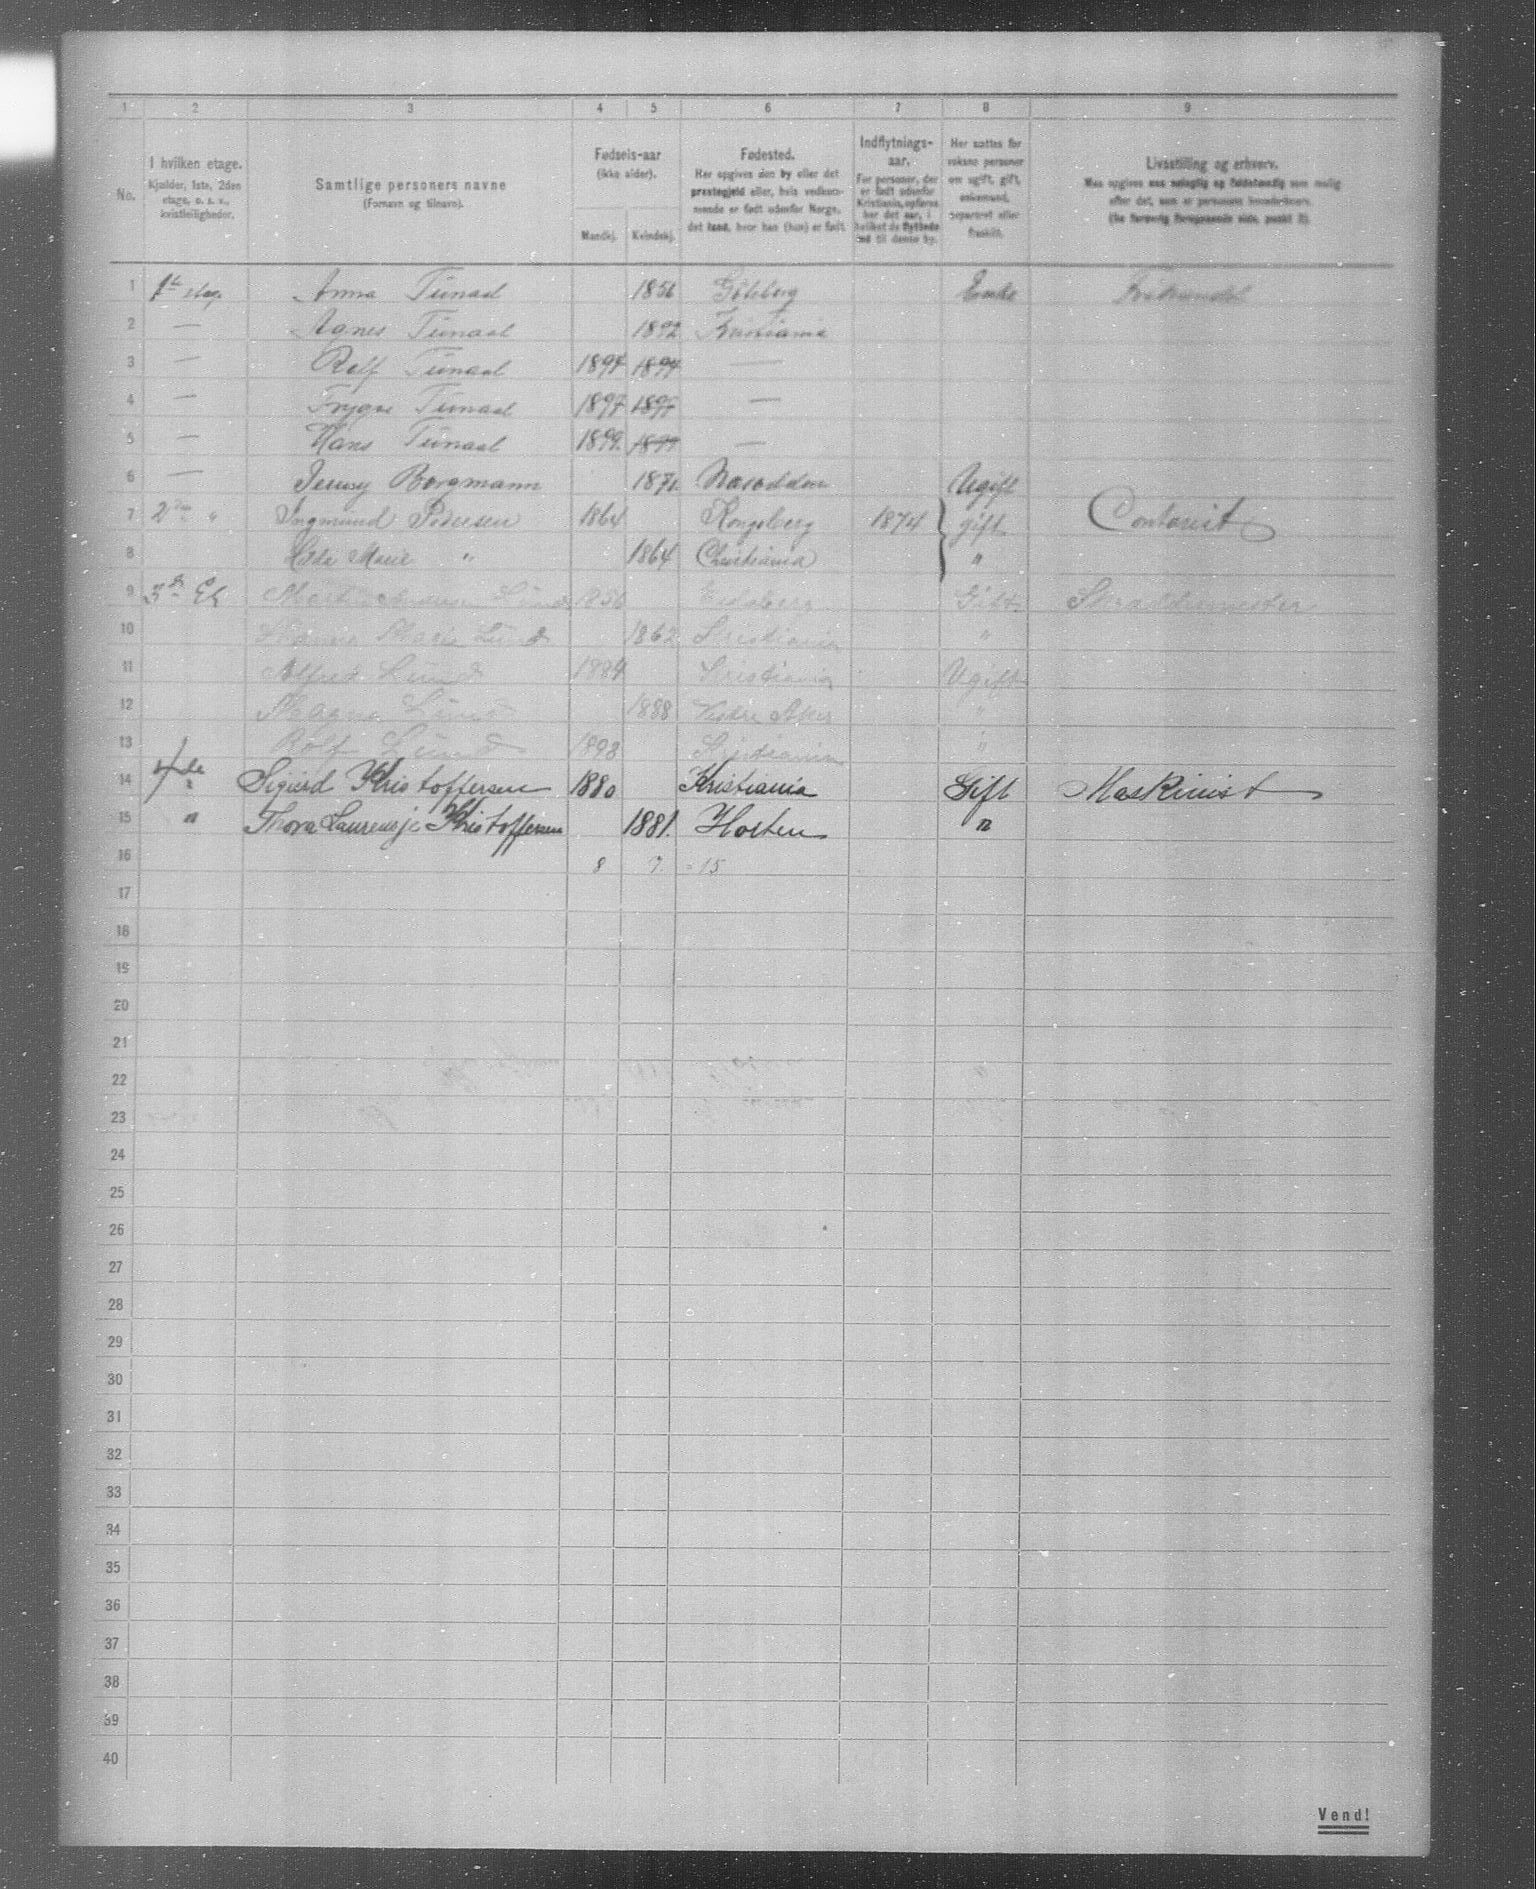 1 2 3 4 5 6 7 8 9
No.
I hvilken etage.
Kjælder, 1ste, 2den
etage, o. s. v.,
kvistleiligheder.
Samtlige personers navne
(Fornavn og tilnavn).
Fødsels-aar
(ikke alder).
Mandkj. Kvindekj.
Fødested.
Her opgives den by eller det
præstegjeld eller, hvis vedkom-
mende er født udenfor Norge,
det land, hvor han (hun) er født.
Indflytnings-
aar.
For personer, der
er født udenfor
Kristiania, opføres
her det aar, i
hvilket de flyttede
ind til denne by.
Her sættes for
voksne personer
om ugift, gift,
enkemand,
separeret eller
fraskilt.
Livsstilling og erhverv.
Maa opgives saa nøiagtig og fuldstændig som mulig
efter det, som er personens hovederhverv.
(Se forøvrig foregaaende side, punkt 2).
1 1ste etag. Anna 1856 Göteberg Enke
2 — Agnes 1892 Kristiania
3 — Rolf 1894 1894 —
4 — 1897 1897 —
5 — Hans 1899. 1899 —
6 — Jenny Borgmann 1871. Næsodden Ugift
7 2den " Ingmund Pedersen 1864 Kongsberg 1874 gift Contorist
8 Marie " 1864 Christiania "
9 3die Et Lund 1856 Eidsberg Gift Skræddermester
10 Marie Lund 1862 Kristiania "
11 Alfred Lund 1884 Kristiania Ugift
12 Magna Lund 1888 Vestre Aker "
13 Rolf Lund 1898 Kristiania "
14 4de Sigurd Kristoffersen 1880 Kristiania Gift Maskinist
15 " Thora Laurensje Kristoffersen 1881. Horten "
16 8 7 - 15
17
18
19
20
21
22
23
24
25
26
27
28
29
30
31
32
33
34
35
36
37
38
39
40
Vend!